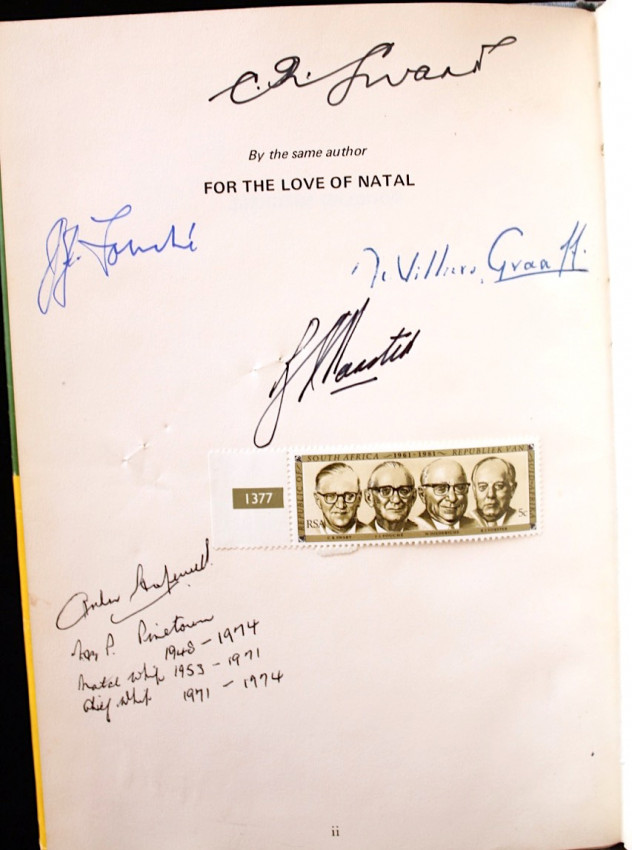 C.R. Swart
By the same author
FOR THE LOVE OF NATAL
J.J. Fouché
De Villiers Graaff
SOUTH AFRICA 1961-1981 REPUBLIEK VAN
1377
RSA 5c
M.P. Pinetown
1948 - 1974
Natal Whip 1953 - 1971
Chief Whip 1971 - 1974
ii